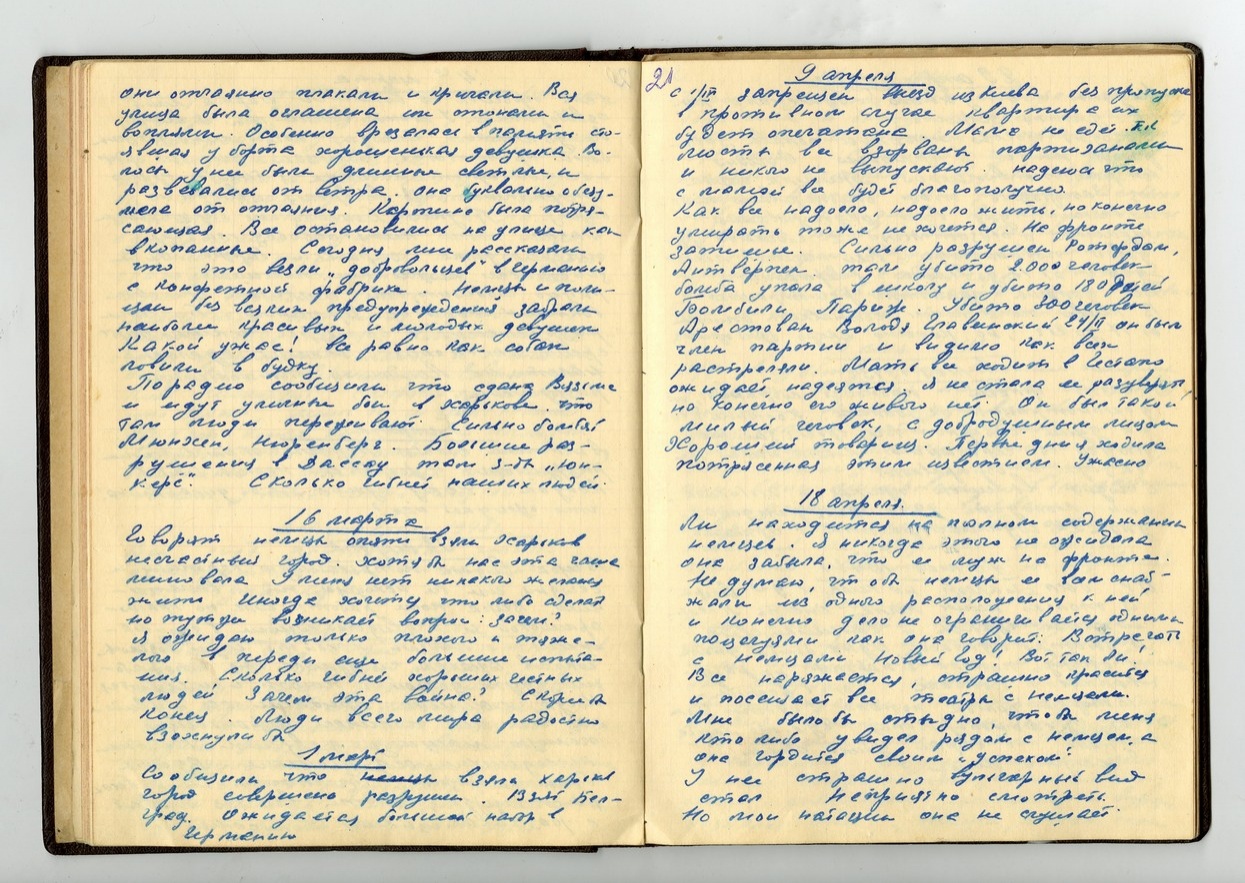 они отчаянно плакали и кричали. Вся
улица была оглашена их стонами и
воплями. Особенно врезалась в память сто-
явшая у борта хорошенькая девушка. Во-
лосы у нее были длинные светлые, и
развевались от ветра. она буквально обезу-
мела от отчаяния. Картина была потря-
сающая. Все остановились на улице как
вкопанные. Сегодня мне рассказали
что это везли „добровольцев" в Германию
с конфетной фабрики. Немцы и поли-
цаи без всяких предупреждений забрали
наиболее красивых и молодых девушек
Какой ужас! все равно как собак
ловили в будку.
По радио сообщили что сдана Вязьма
и идут уличные бои в Харькове. что
там люди переживают. Сильно бомбят
Мюнхен, Нюренберг. Большие раз-
рушения в Дассау там з-ды „юн-
керс". Сколько гибнет наших людей.
16 марта
Говорят немцы опять взяли Харьков
несчастный город. хотя бы нас эта чаша
миновала У меня нет никакого желания
жить Иногда хочется что либо сделать
но тут же возникает вопрос: зачем?
я ожидаю только плохого и тяже-
лого в переди еще большие испыта-
ния. Сколько гибнет хороших честных
людей Зачем эта война? Скорей бы
конец. Люди всего мира радостно
вздохнули бы
1 март
Сообщили что немцы взяли Харьков
город совершено разрушен. Взят Бел-
град. Ожидается большой набор в
Германию
21
9 апреля
с 1/III запрещен выезд из Киева без пропуска
в противном случае квартира их
будет опечатана. Мама не едет.
мосты все взорваны партизанами
и никого не выпускают. надеюсь что
с мамой все будет благополучно.
Как все надоело, надоело жить, но конечно
умирать тоже не хочется. На фронте
затишье. Сильно разрушен Ротердам,
Антверпен. там убито 2.000 человек
бомба упала в школу и убито 180 детей
Бомбили Париж. Убито 300 человек
Арестован Володя Главинский 24/II он был
член партии и видимо как всех
растреляли. Мать все ходит в Гестапо
ожидает надеятся. я не стала ее разуверять,
но конечно его живого нет. Он был такой
милый человек, с добродушным лицом
Хороший товарищ. Первые дни я ходила
потрясенная этим известием. Ужасно
18 апреля.
Ли находится на полном содержании
немцев. Я никогда этого не ожидала
она забыла, что ее муж на фронте.
Не думаю, что бы немцы ее всем снаб-
жали из одного расположения к ней
и конечно дело не ограничивается, одними
поцелуями как она говорит. Встречать
с немцами Новый Год! Вот так Ли!
Все наряжается, страшно красится
и посещает все театры с немцами.
Мне было бы стыдно, чтобы меня
кто либо увидел рядом с немцем, а
она гордится своим „успехом"
У нее страшно вульгарный вид
стал Неприятно смотреть.
Но мои нотации она не слушает.